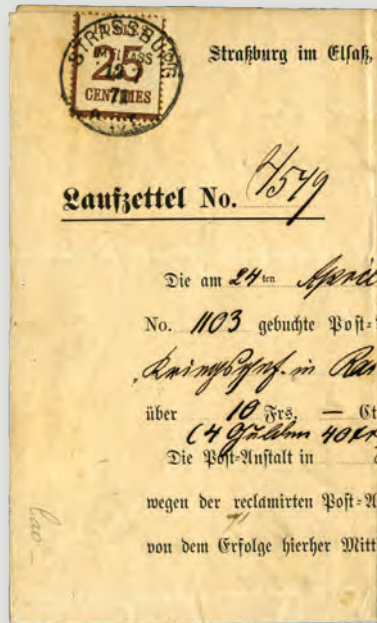 STRASSBURG
IM ELSASS
POSTES
25
CENTIMES
12
71
Straßburg im Elsaß,
Laufzettel No. 4/579
Die am 24 ten April
No. 1103 gebuchte Post=
Kriegsgef. in Ras
über 10 Frs. — Ct
(4 Gulden 40 kr
Die Post-Anstalt in
wegen der reclamirten Post=A
von dem Erfolge hierher Mitt